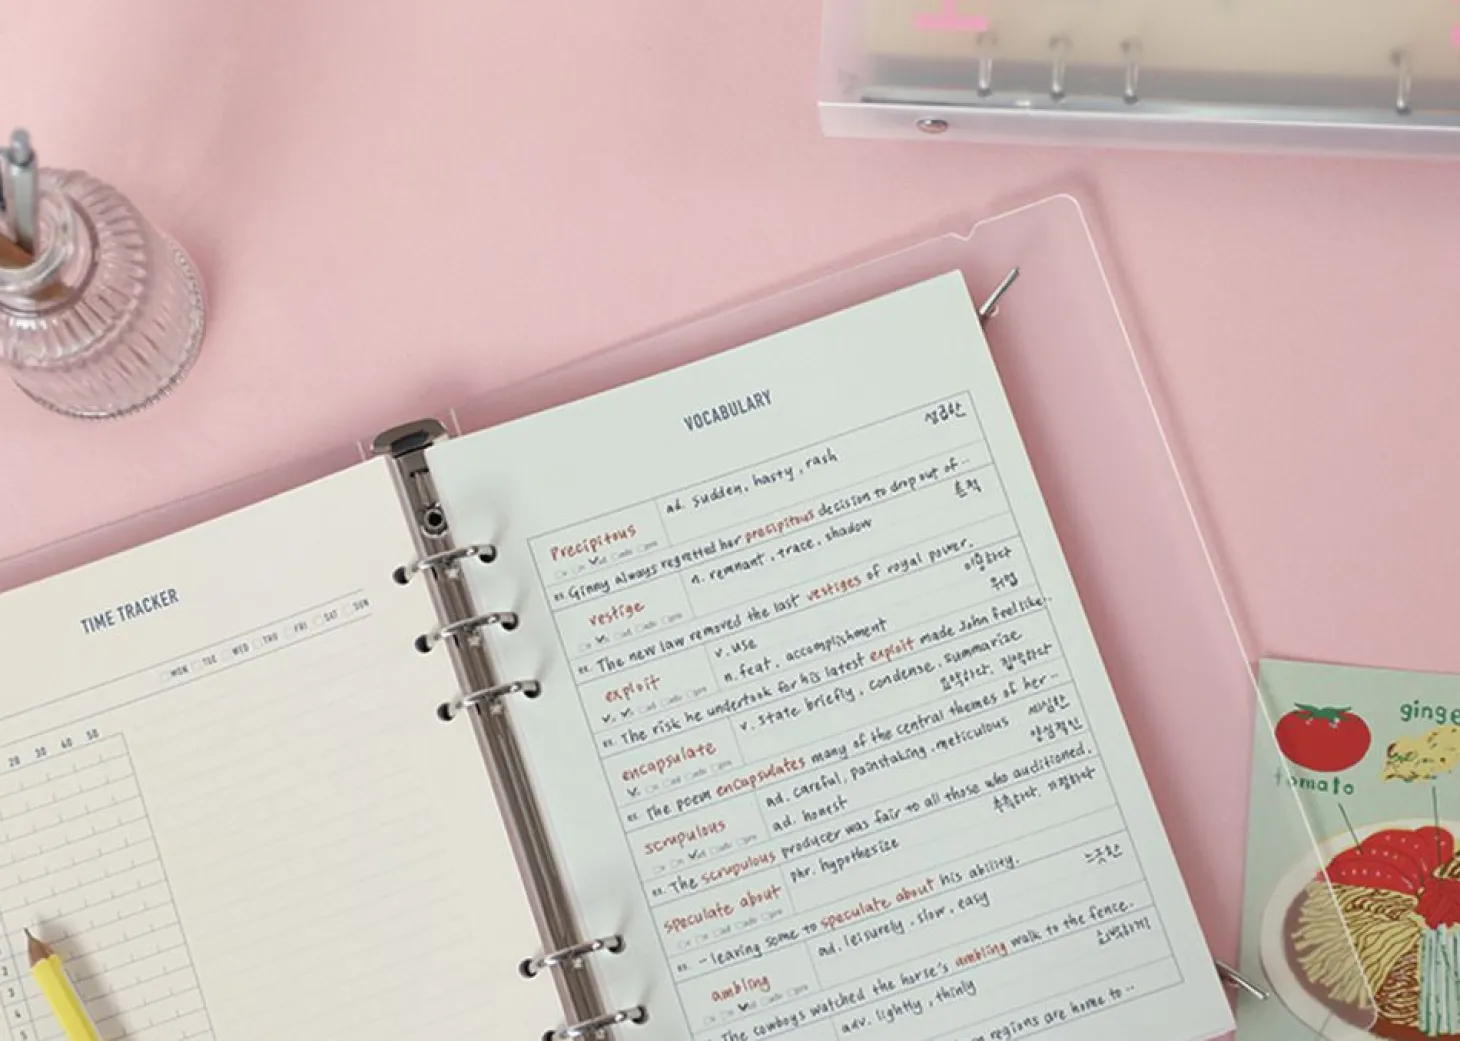 TIME TRACKER
MON TUE WED THU FRI SAT SUN
20 30 40 50
2
3
4
5
VOCABULARY
precipitous
ad. sudden, hasty, rash
ex. Ginny always regretted her precipitous decision to drop out of..
vestige
n. remnant, trace, shadow
흔적
ex. The new law removed the last vestiges of royal power.
exploit
v. use
이용하다
n. feat, accomplishment
위업
ex. The risk he undertook for his latest exploit made John feel like..
encapsulate
v. state briefly, condense, summarize
요약하다, 압축하다
ex. The poem encapsulates many of the central themes of her..
scrupulous
ad. careful, painstaking, meticulous
세심한
ad. honest
양심적인
ex. The scrupulous producer was fair to all those who auditioned.
speculate about
phr. hypothesize
추측하다,
ex. - leaving some to speculate about his ability.
ambling
ad. leisurely, slow, easy
느긋한
The cowboys watched the horse's ambling walk to the fence.
adv. lightly, thinly
regions are home to..
tomato
ginge